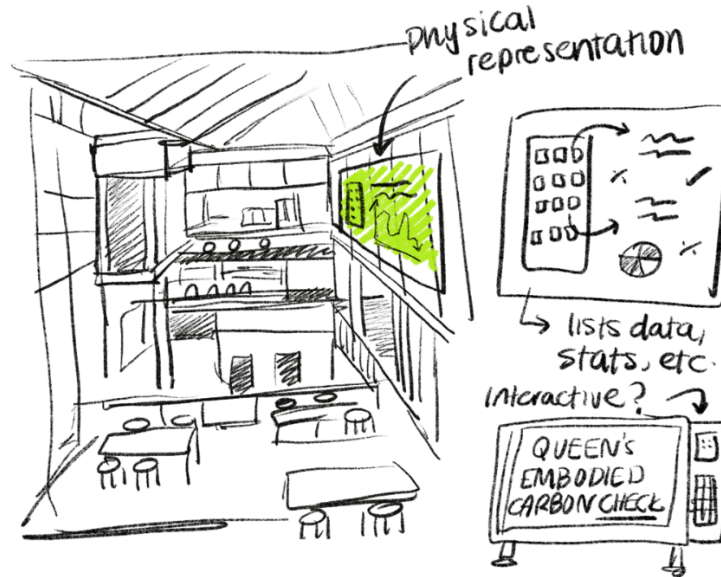 Physical
representation
lists data,
stats, etc.
Interactive?
QUEEN'S
EMBODIED
CARBON CHECK